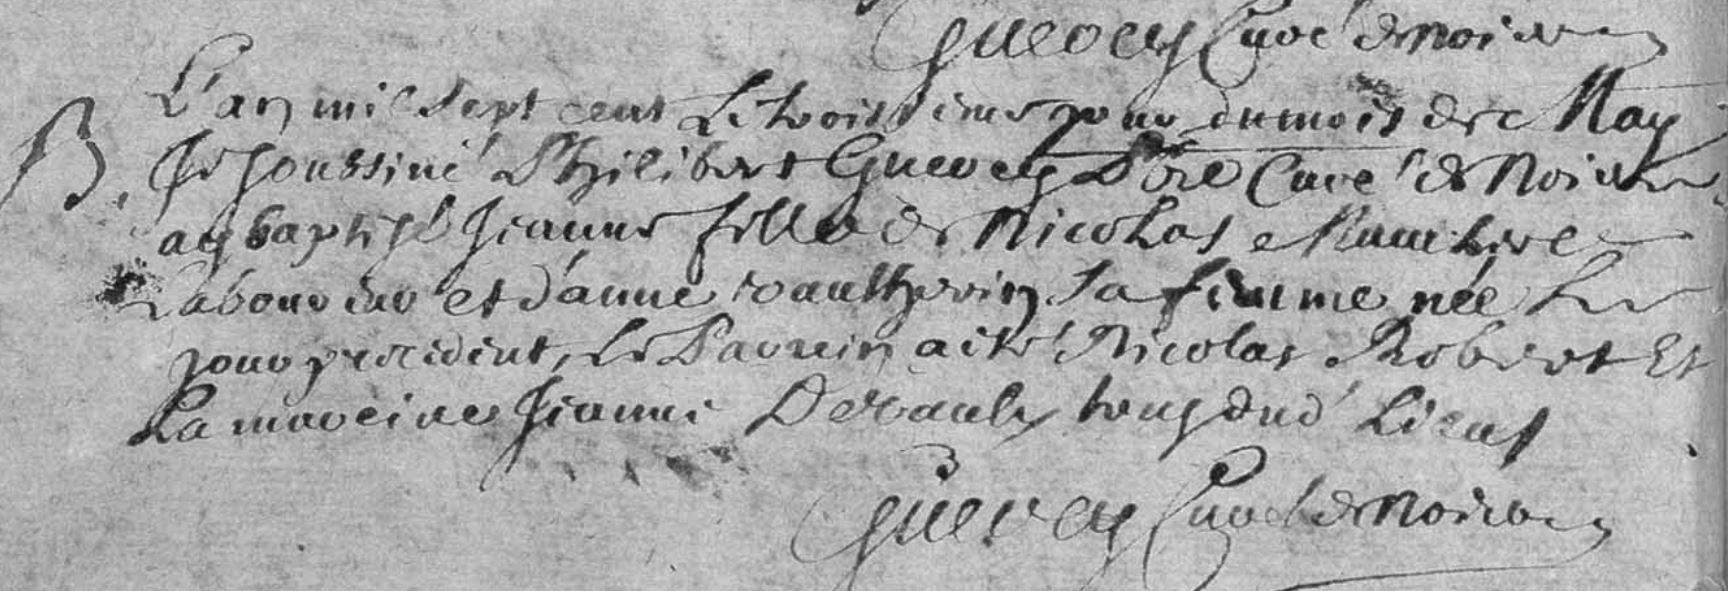 Guerey Curé de Noiron
L'an mil sept cent Le troisième jour du mois de May
B. Je soussiné Philibert Guerey Pbre Curé de Noiron
ay baptisé Jeanne fille de Nicolas
Laboureur et d'anne vautherin sa femme née Le
jour precedent, Le Parrein a été Nicolas Robert Et
La mareine Jeanne tous dud Lieu
Guerey Curé de Noiron